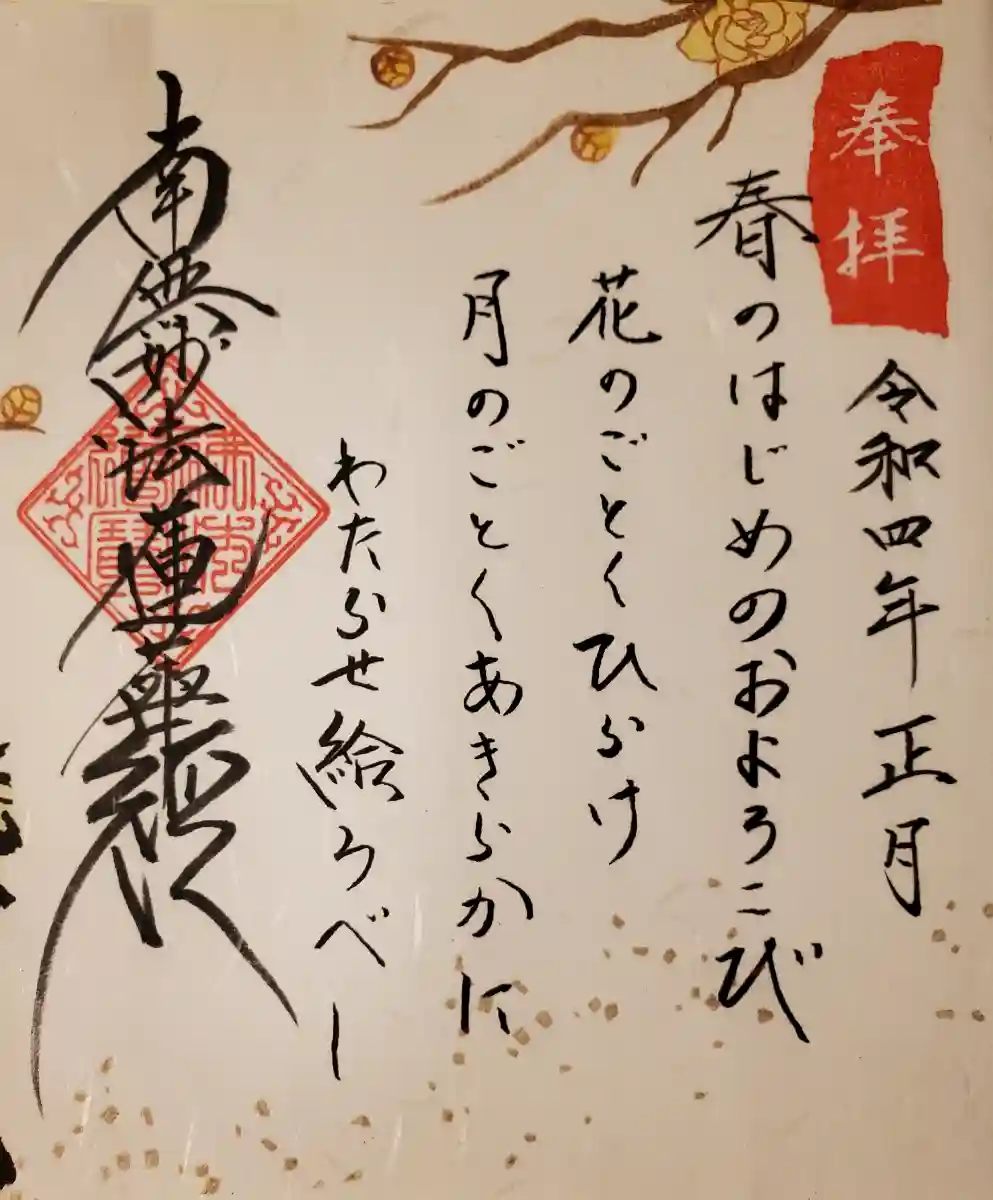 奉拝
令和四年正月
春のはじめのおよろこび
花のごとくひらけ
月のごとくあきらかに
わたらせ給うべし
南無妙法蓮華経